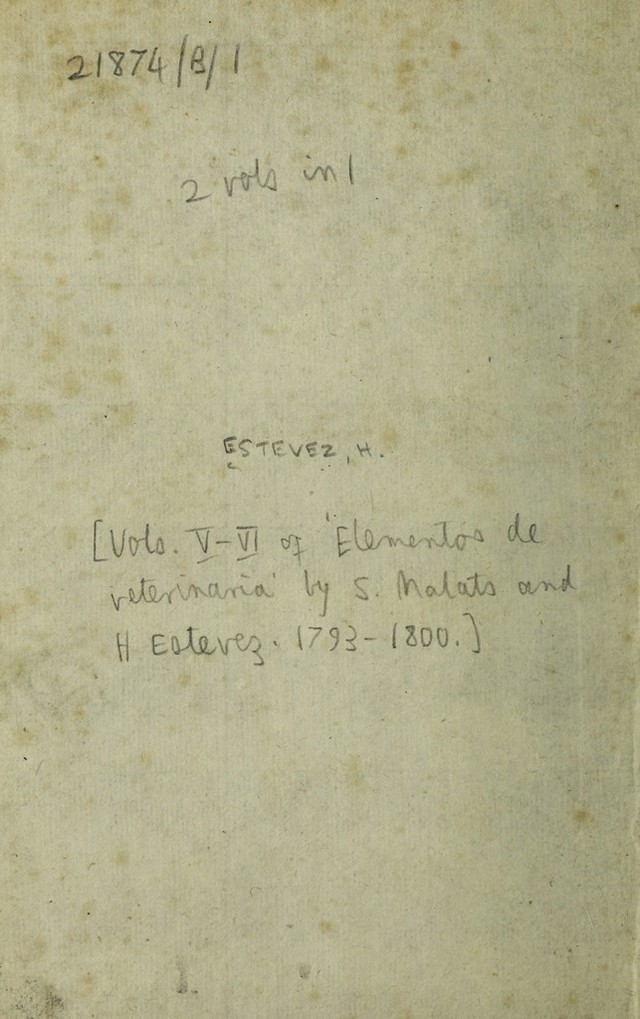 21874/B/1
2 vols in 1
ESTEVEZ, H.
[Vols. V-VI of 'Elementos de
veterinaria' by S. Malats and
H Estevez. 1793-1800.]